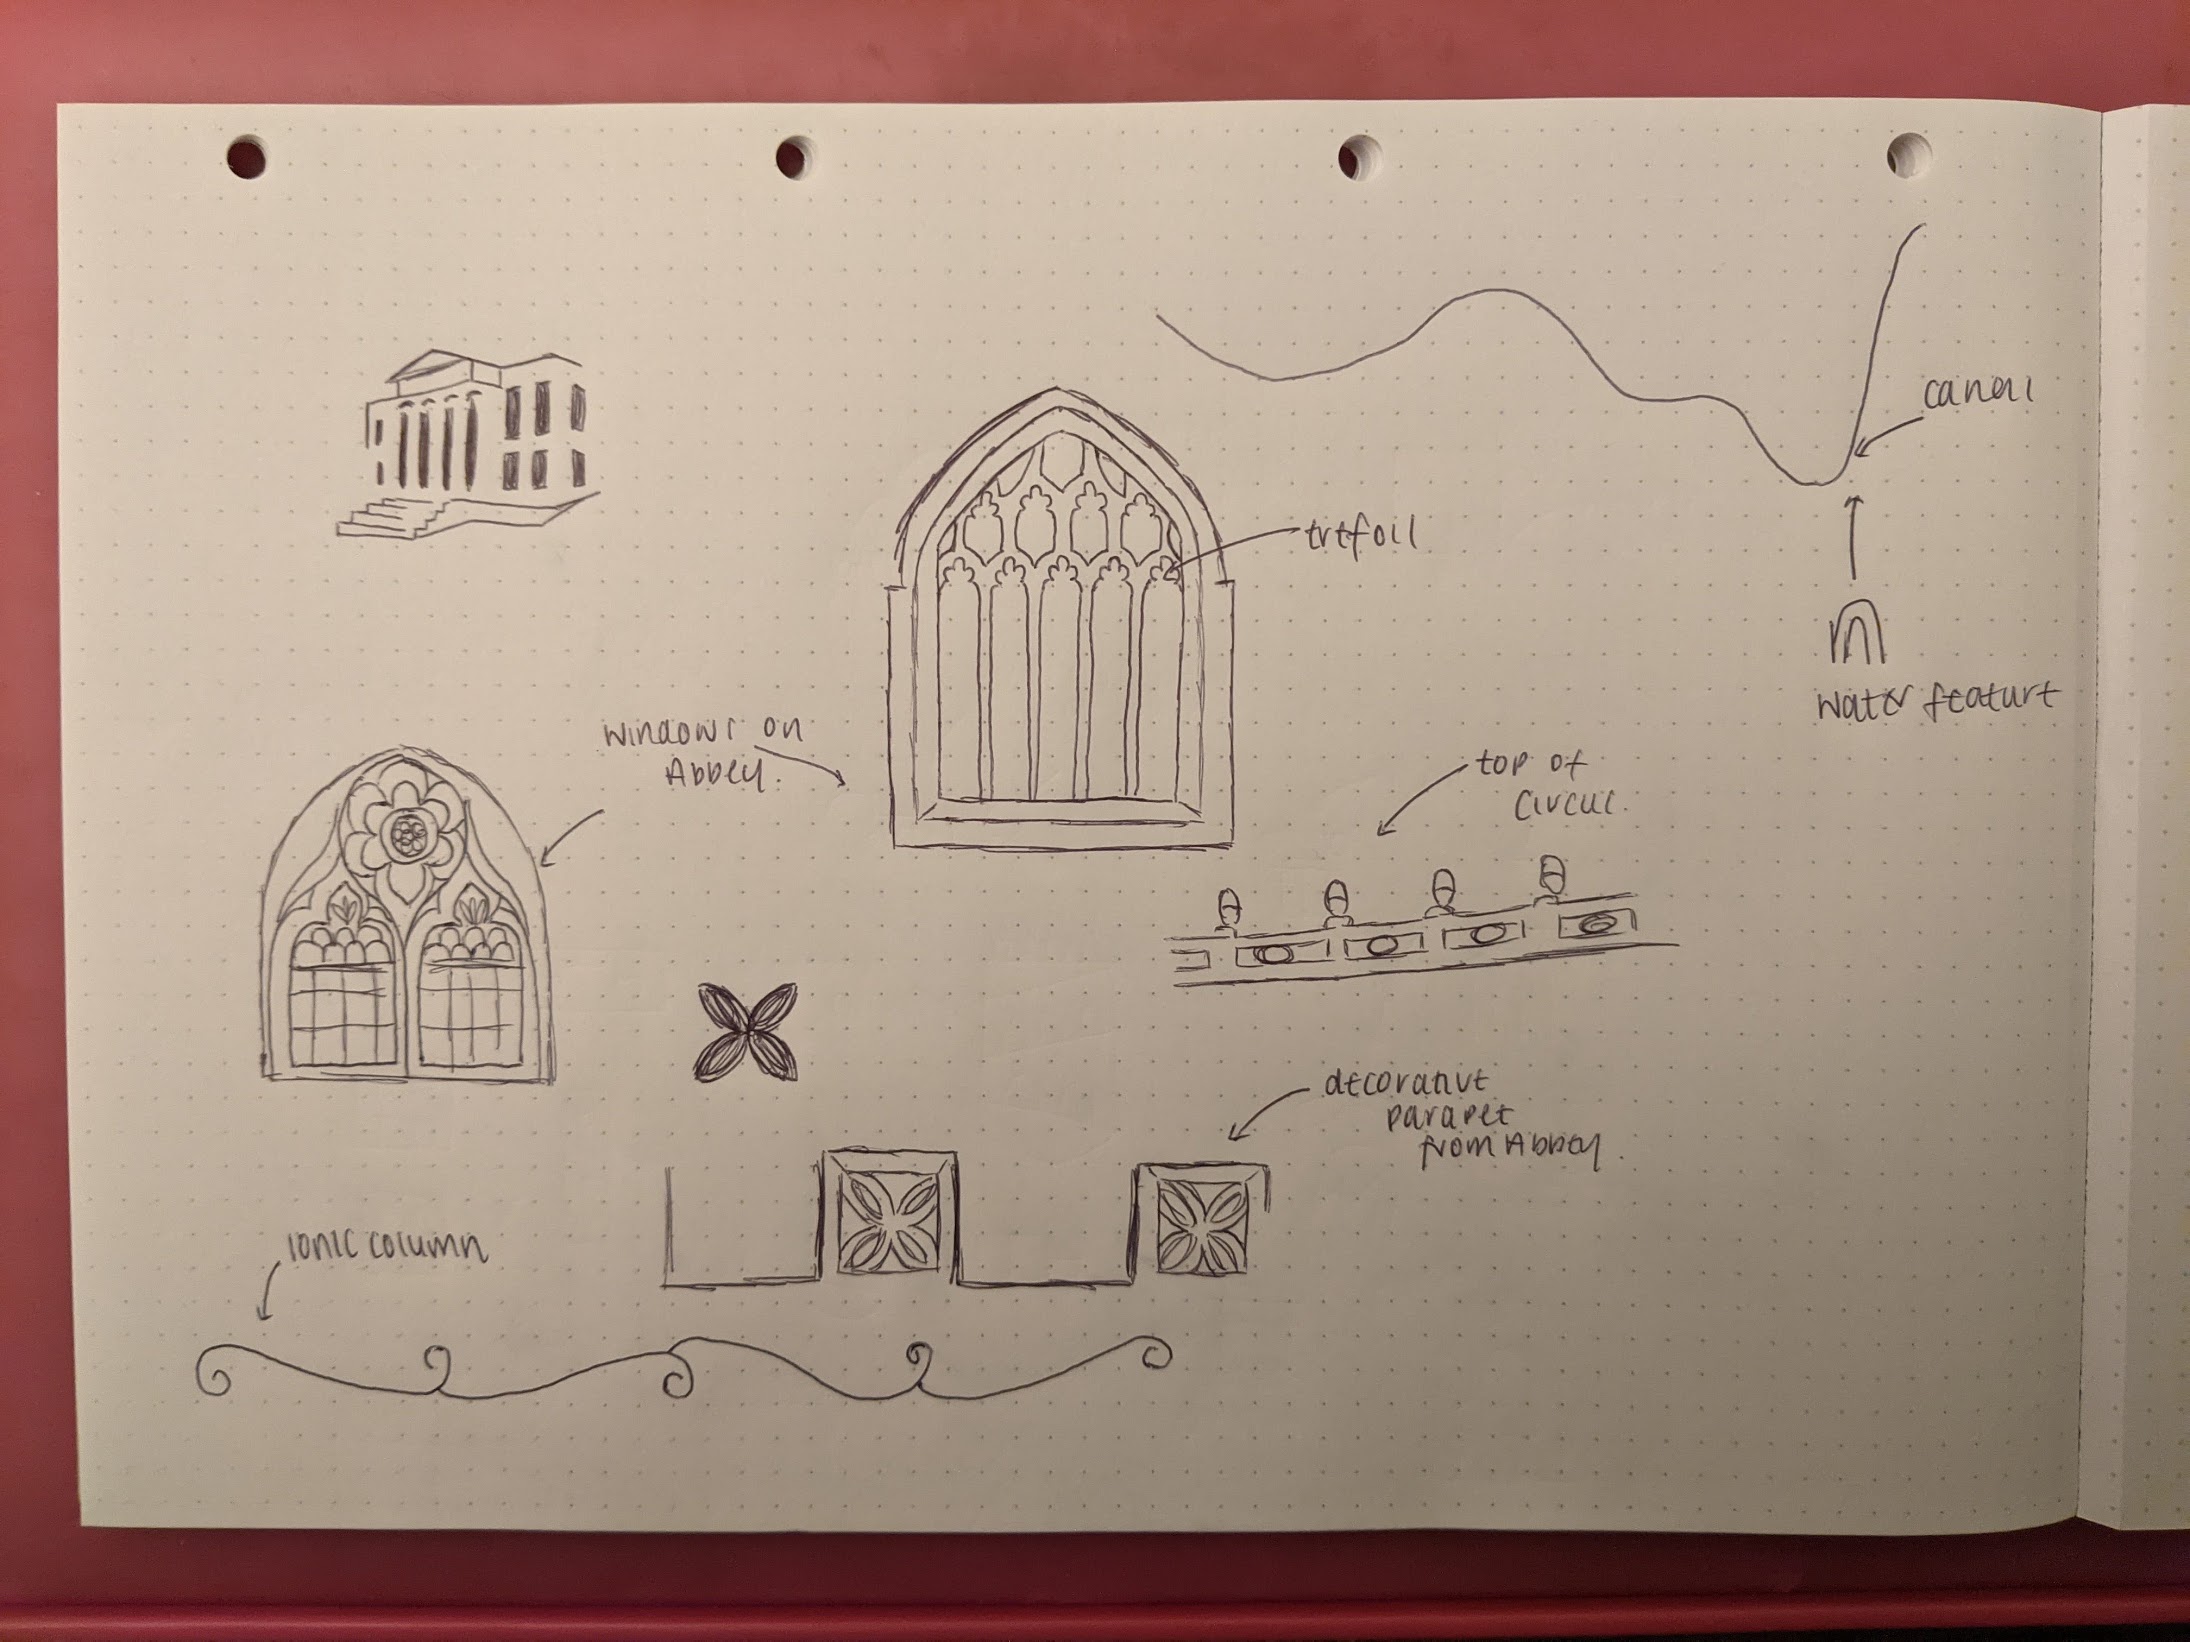 canal
trefoil
water feature
windows on
Abbey.
top of
Circus.
decorative
parapet
from Abbey.
ionic column